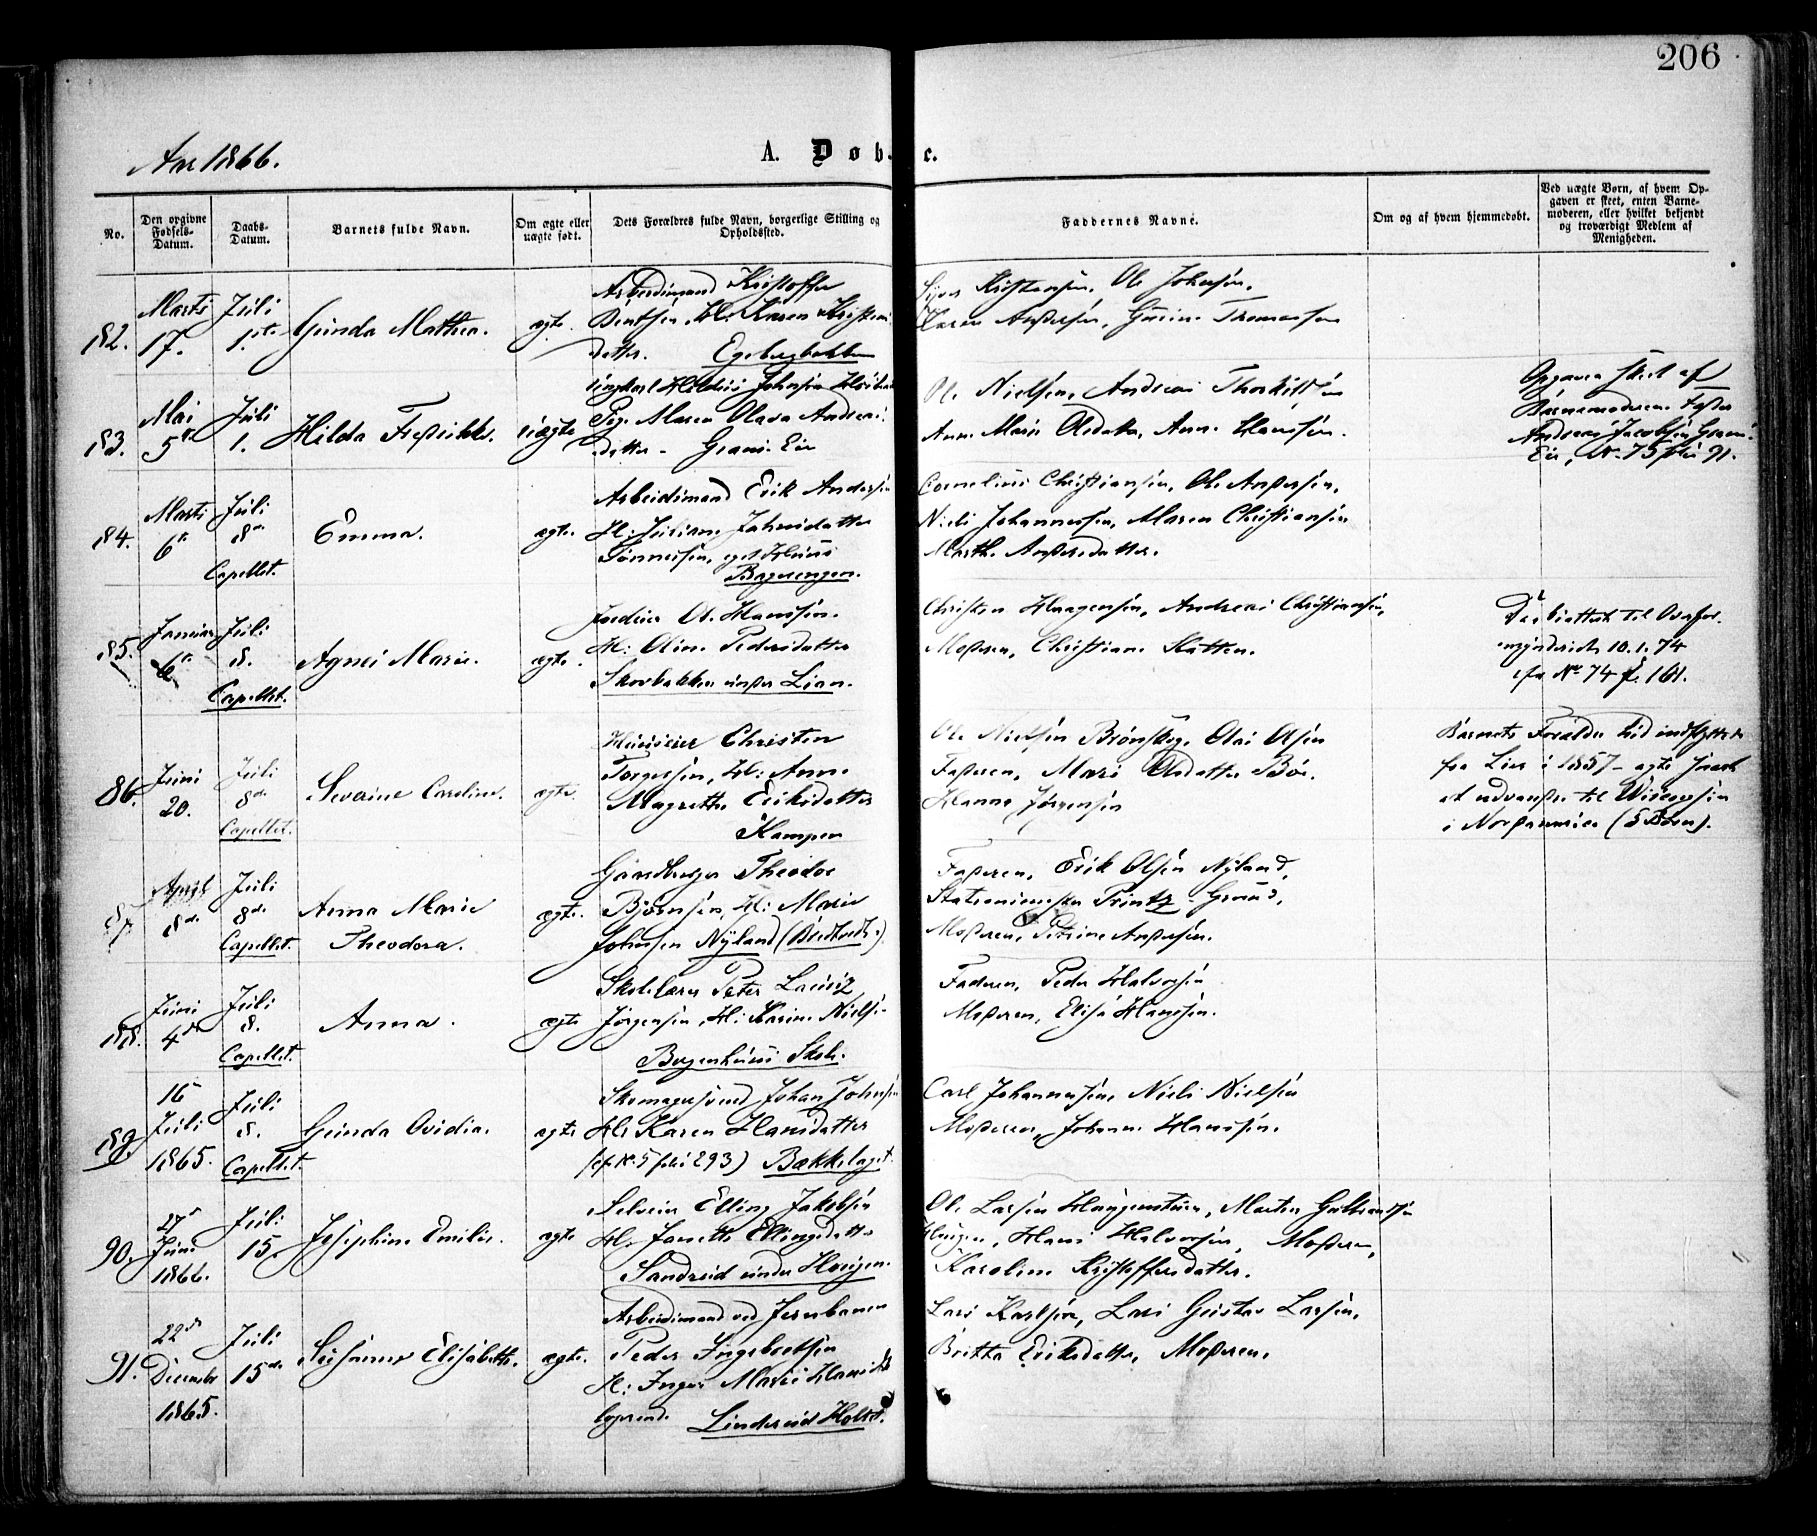 206
Aar 1866.
A. Døb. e.
No.
Den opgivne Fødsels-Datum.
Daabs-Datum.
Barnets fulde Navn.
Om ægte eller uægte født.
Dets Forældres fulde Navn, borgerlige Stilling og Opholdssted.
Faddernes Navne.
Om og af hvem hjemmedøbt.
Ved uægte Børn, af hvem Opgaven er skeet, enten Barnemoderen, eller hvilket bekjendt og troværdigt Medlem af Menigheden.
82.
Marts
17.
Juli
1.ste
Gunda Mathea.
ægte.
Arbeidsmand Kristoffer
Bentsen, H: Karen Kristens
datter. Egebergbakken
Kristensen, Ole Johnsen,
Karen Andersen,
83.
Mai
5te
Juli
1.
Hilda Fredrikke.
uægte
Ungkarl Johnsen
Pige Maren Olava Andreas
datter - Eie
Ole Nielsen, Andreas Thorkildsen
Anne Marie Olsdatter, Anne Hansen.
Opgaven skeet af
Barnemoderens Fader
Andreas Jacobsen
Eie, No. 75 folio 91.
84.
Marts
6te
Juli
8de
Capellet.
Emma.
ægte.
Arbeidsmand Erik Andersen
H: Juliane
Tønnesen, eget Huus
Cornelius Christiansen, Ole Andersen,
Niels Johannessen, Maren Christiansen
Marthe Andersdatter.
85.
Januar
6te
Juli
8.
Capellet.
Agnes Marie.
ægte.
Ol. Hanssen.
H: Oline Pedersdatter
Skovbakken under Lian.
Christen Haagensen, Andreas Christiansen,
Moderen, Christiane Hatten.
Daabsattest til Overfor-
mynderiet 10.1.74
cfr No 74 f. 161.
86.
Juni
20.
Juli
8de
Capellet.
Severine Caroline.
ægte.
Huuseier Christen
Torgersen, H: Anne
Magrethe Eriksdatter
Kampen
Ole Nielsen Olai Olsen
Faderen, Mari Olsdatter Bøe.
Hanna Jørgensen
Barnets Forældre hid indflyttede
fra Lier i 1857 - agte
at udvandre til Wisconsin
i Nordamerica (5 Børn).
87
April
8de
Juli
8de
Capellet.
Anna Marie
Theodora.
ægte.
Gaardbruger Theodor
Bjørnsen, H: Marie
Johnsen Nyland
Faderen, Erik Olsen Nyland,
Stationsmester Printz Grorud,
Moderen, Petrine Andersen.
88.
Juni
4de
Juli
8.
Capellet.
Anna.
ægte
Skolelærer Peter
Jørgensen, H: Karine Nielsen
Skole.
Faderen, Peder Halvorsen
Moderen, Elise Hansen.
89.
16
Juli
1865.
Juli
8.
Capellet.
Gunda Ovidia.
ægte
Skomagersvend Johan Johnsen
H: Karen Hansdatter
(cfr. No. 5 folio 293) Bækkelaget.
Carl Johannesen, Niels Nielsen
Moderen, Johanne Hanssen.
90.
27de
Juni
1866.
Juli
15.
Josephine Emilie.
ægte
Selveier Elling Jakobsen
H: Janette Ellingsdatter
Sandreid under Haugen.
Ole Larsen Haugenstuen, Martin Gulbrandsen
Haugen, Hans Halvorsen, Moderen,
Karoline Kristoffersdatter.
91.
22de
December
1865.
Juli
15de
Susanne Elisabeth.
ægte.
Arbeidsmand ved Jernbanen
Peder Ingebretsen
H: Inger Marie
logerende.
Lars Karlsen, Lars Gustav Larsen,
Britta Eriksdatter, Moderen.